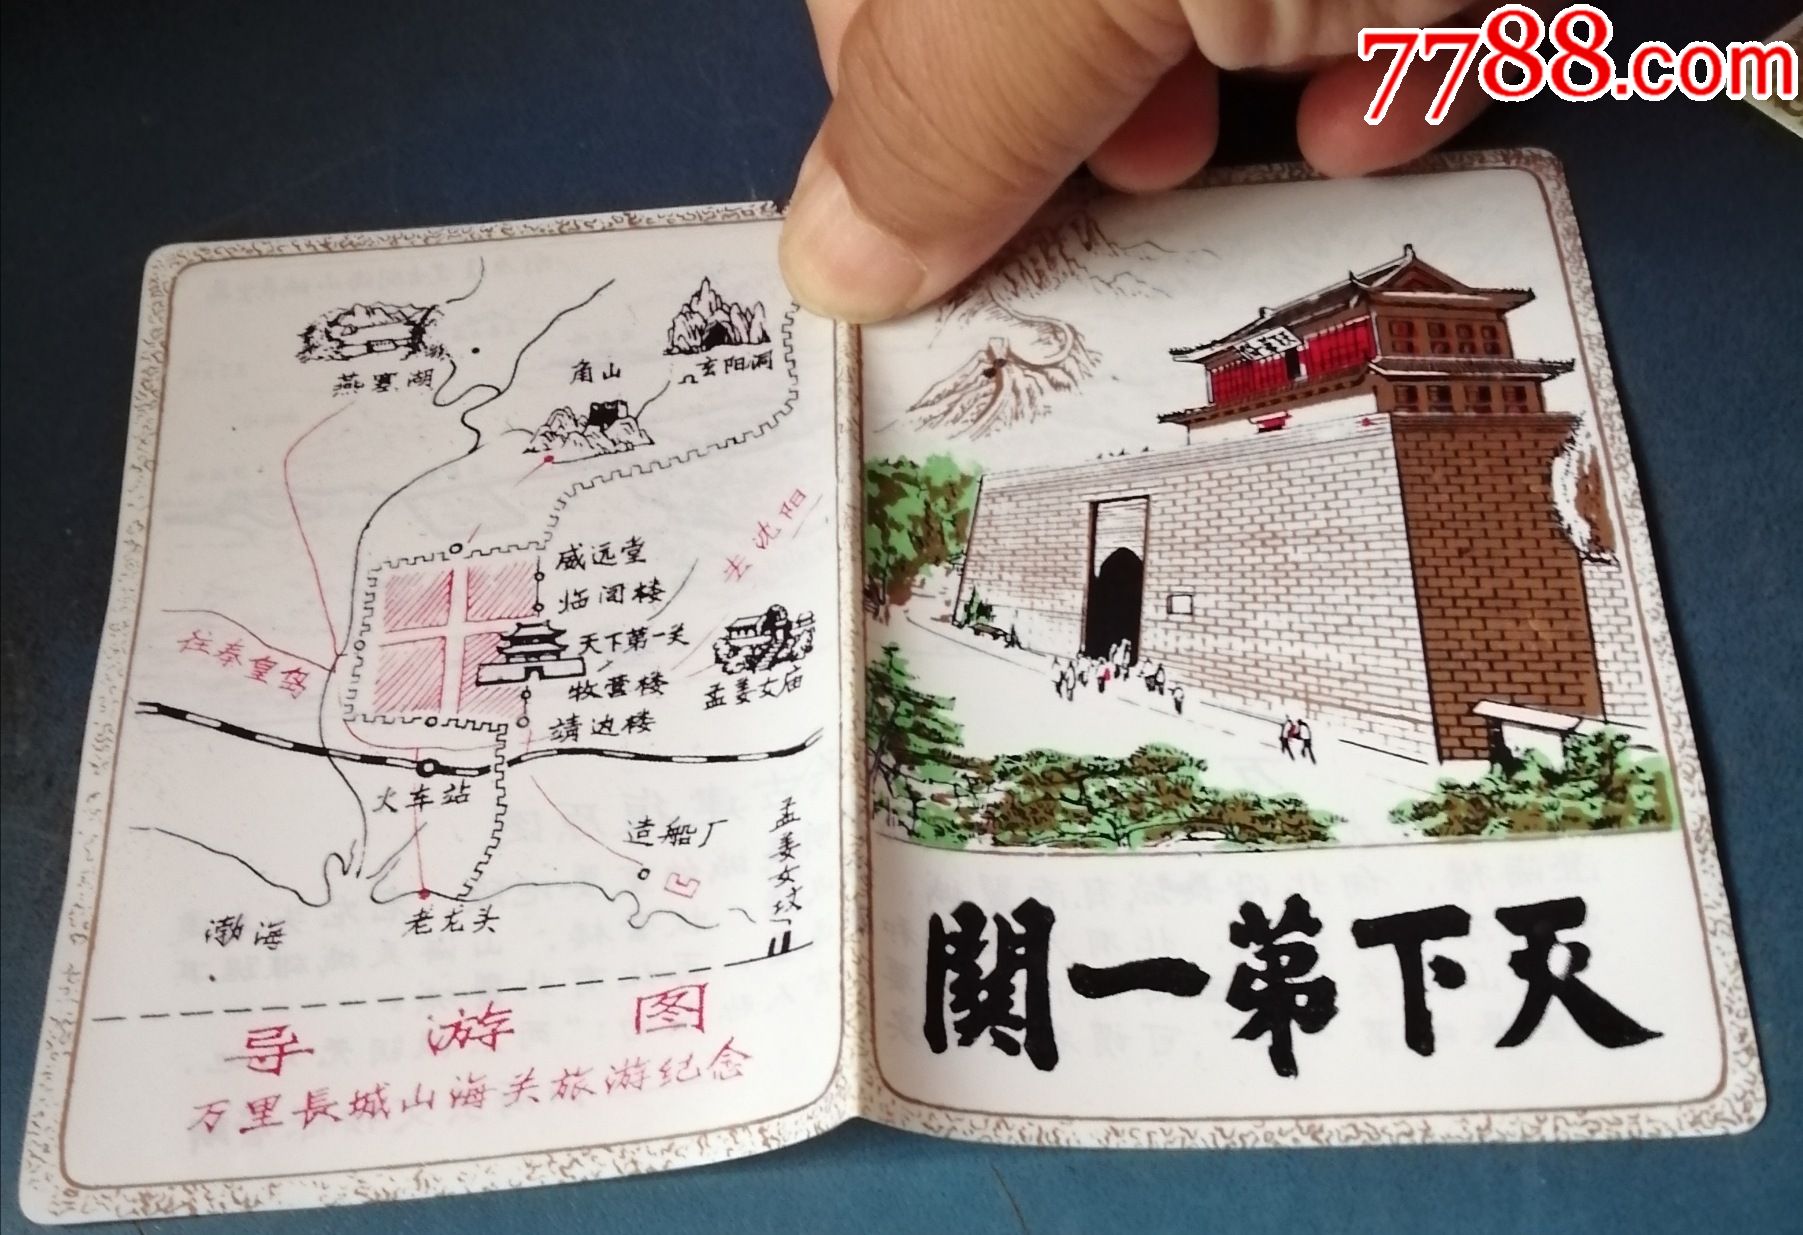 7788.com
燕塞湖
角山
玄阳洞
去沈阳
威远堂
临闾楼
天下第一关
牧营楼
靖边楼
孟姜女庙
往秦皇岛
火车站
造船厂
孟姜女坟
老龙头
渤海
导游图
万里長城山海关旅游纪念
関一第下天